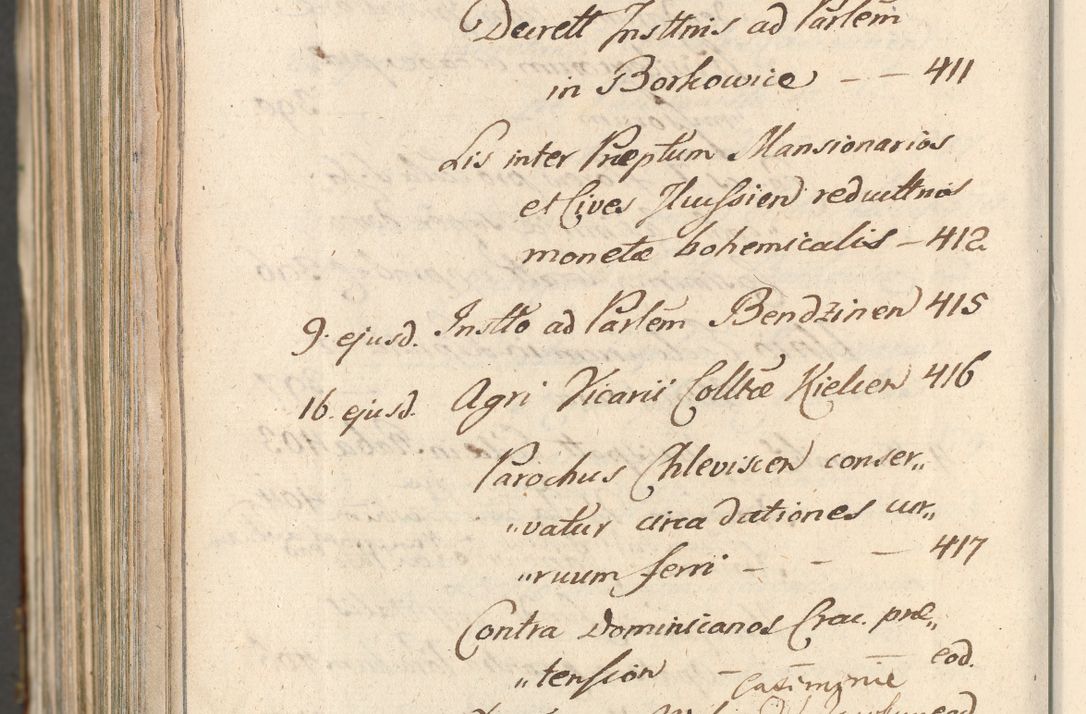 Decrett Insttnis ad Parlem
in Borkowice - - 411
Lis inter Præptum Mansionarios
et Cives Ilussien reducttnis
monetæ bohemicalis - 412
9. ejusd. Instto ad Parlem Bendzinen 415
16. ejusd. Agri Vicarii Colltæ Kielcen 416
Parochus Chleviscen conser„
„vatur circa dationes cur„
„ruum ferri - - - 417
Contra Dominicanos Crac. præ„
„tension - eod.
Casimiriæ